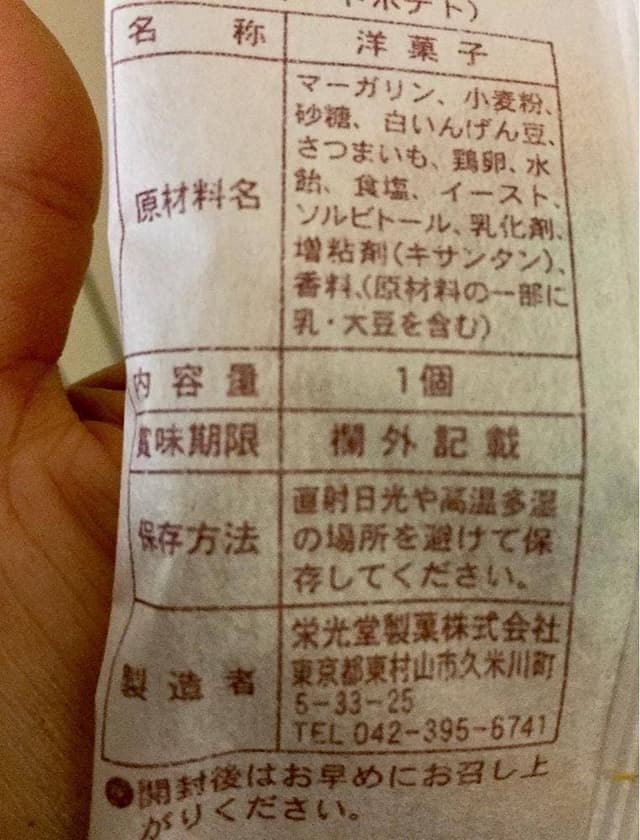 トポテト)
名称 洋菓子
原材料名 マーガリン、小麦粉、
砂糖、白いんげん豆、
さつまいも、鶏卵、水
飴、食塩、イースト、
ソルビトール、乳化剤、
増粘剤(キサンタン)、
香料、(原材料の一部に
乳・大豆を含む)
内容量 1個
賞味期限 欄外記載
保存方法 直射日光や高温多湿
の場所を避けて保
存してください。
製造者 栄光堂製菓株式会社
東京都東村山市久米川町
5-33-25
TEL 042-395-6741
開封後はお早めにお召し上
がりください。